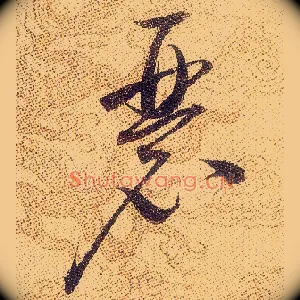 惡
Shufawang.cn